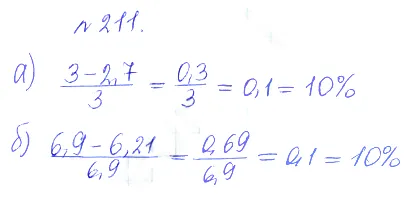 № 211.
а) (3 - 2,7)/3 = 0,3/3 = 0,1 = 10%
б) (6,9 - 6,21)/6,9 = 0,69/6,9 = 0,1 = 10%